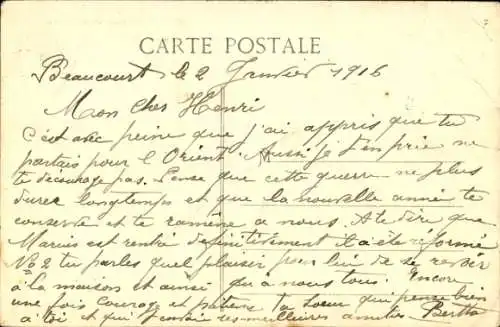 CARTE POSTALE
Beaucourt le 2 Janvier 1916
Mon cher Henri
C'est avec peine que j'ai appris que tu
partais pour l Orient. Aussi je t'en prie ne
te décourage pas. Pense que cette guerre ne plus
durer longtemps et que la nouvelle année te
conserve et te ramène a nous. A te dire que
est rentré definitivement il a été réformé
No 2 tu parles quel plaisir pour lui de se revoir
à la maison et ainsi qu'à nous tous. Encore
une fois courage et ta soeur qui pense bien
à toi et qui t'envoie ses meilleures amitiés Bertha